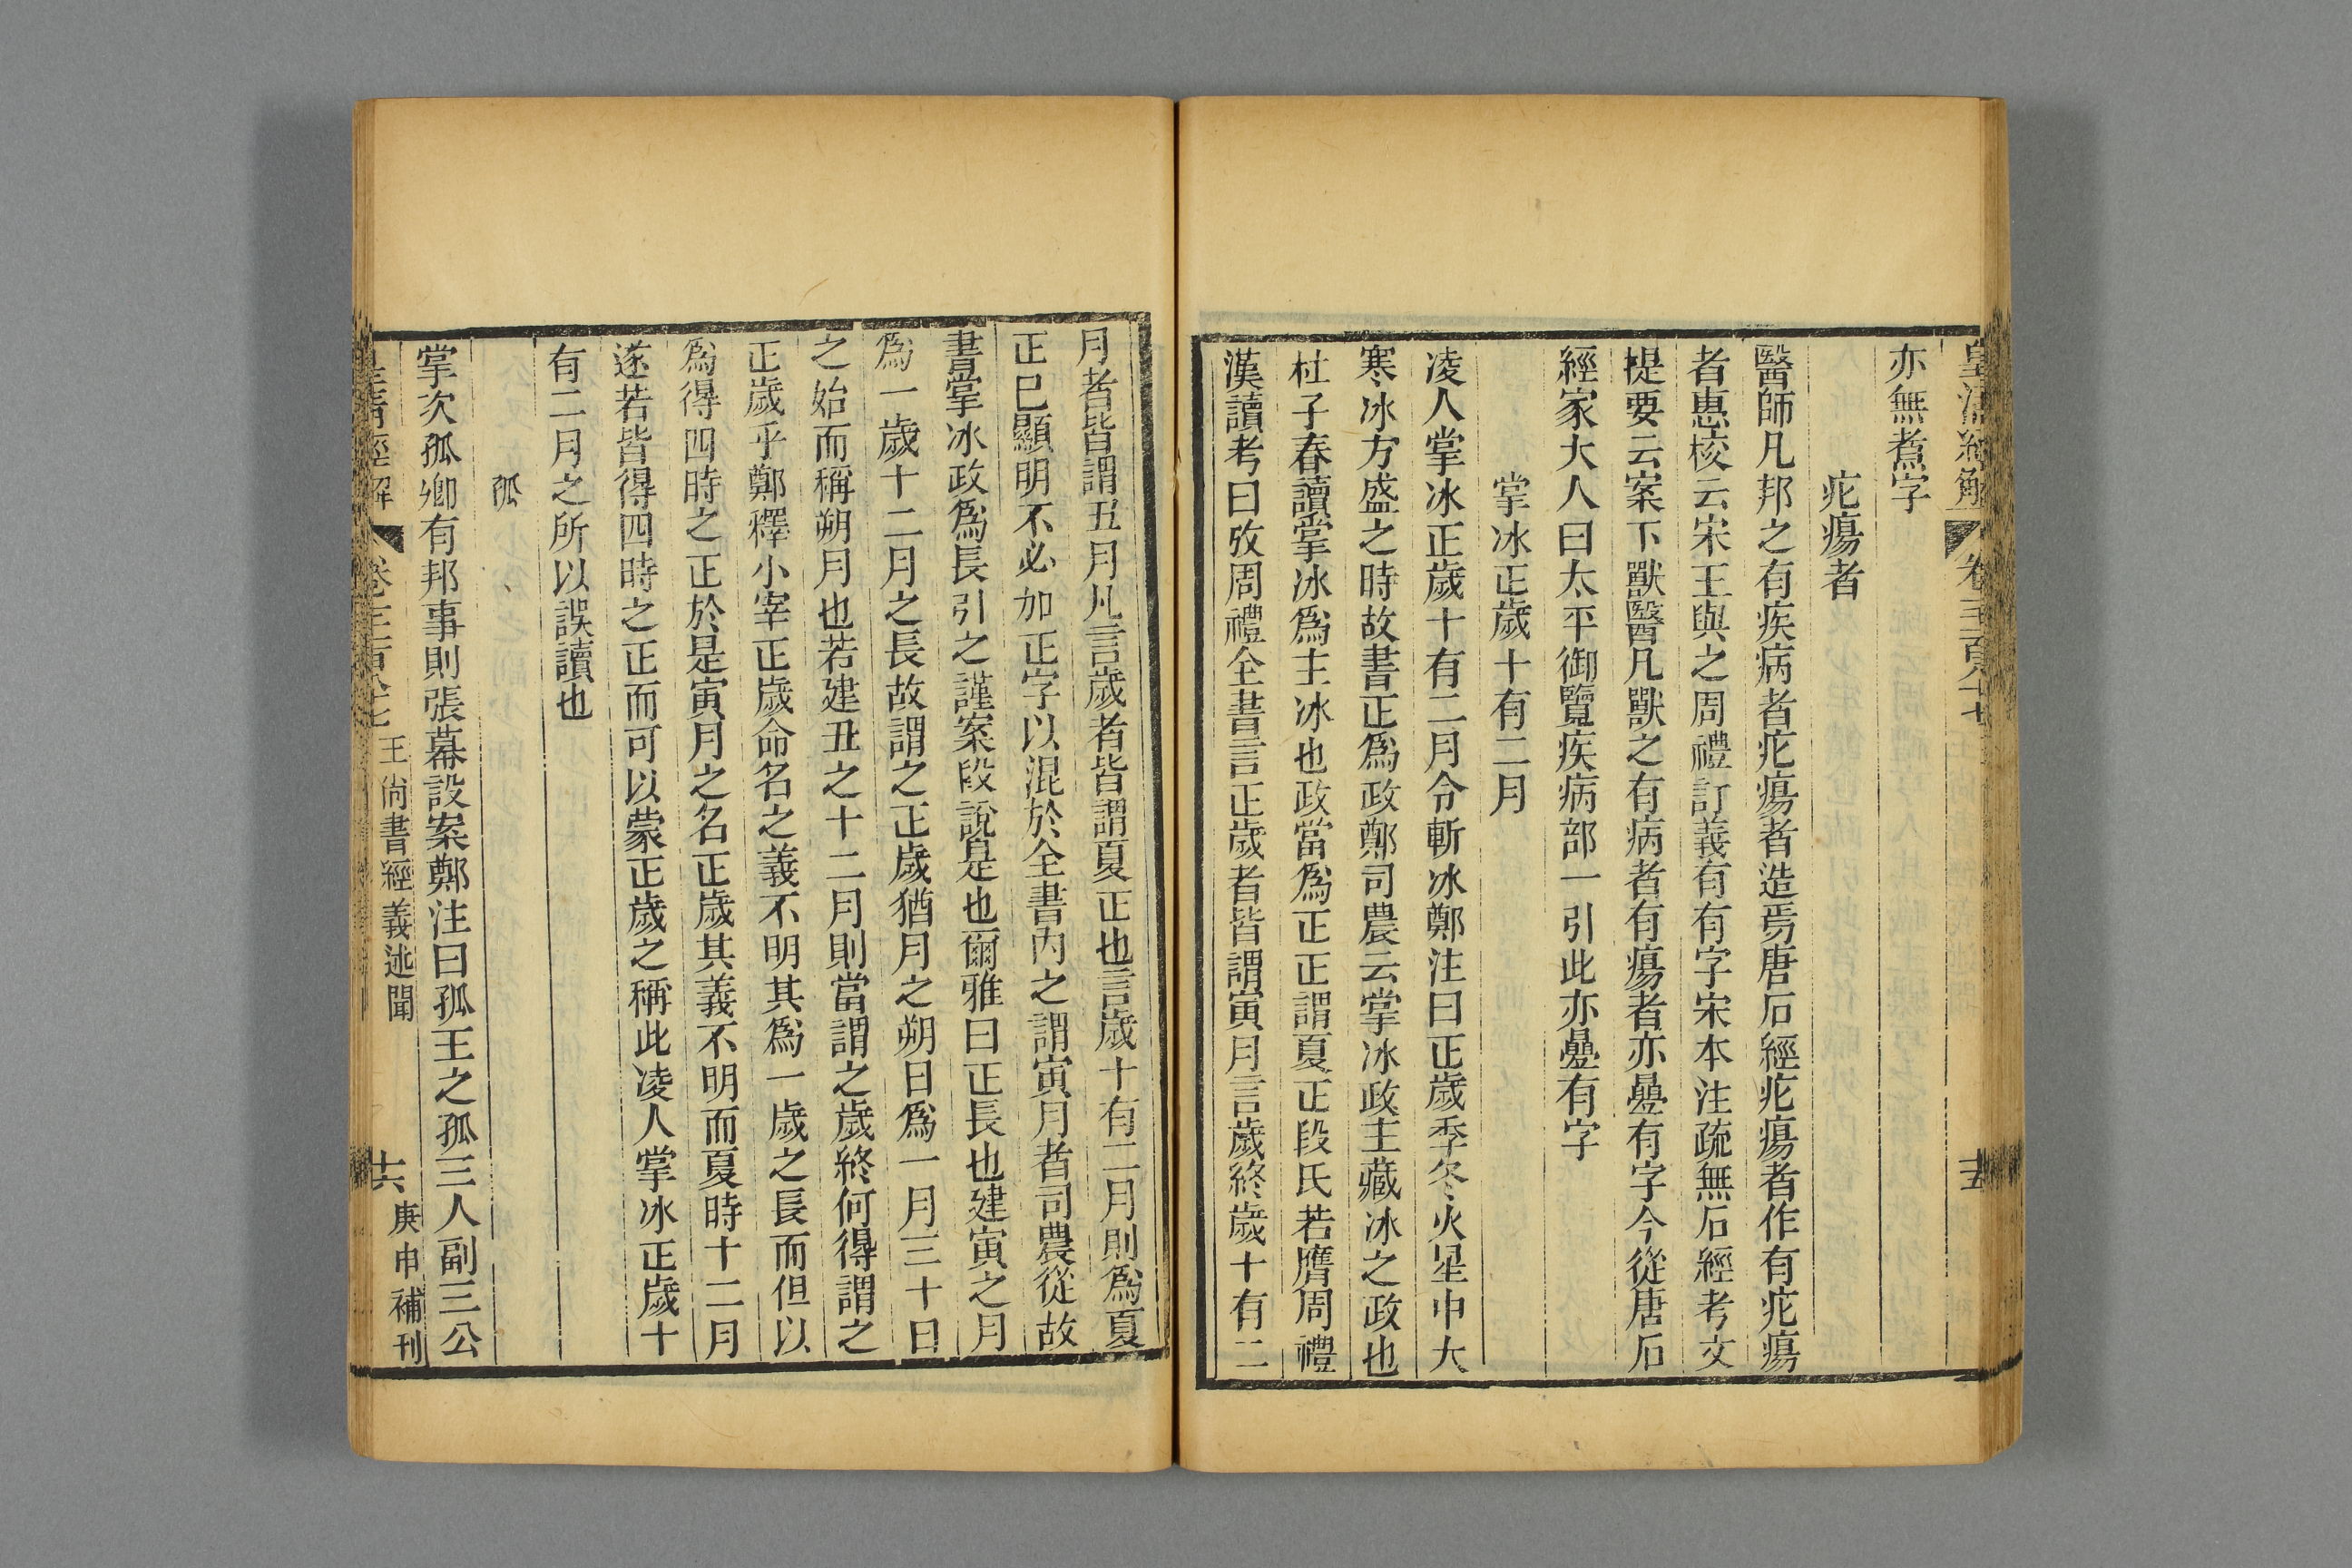 皇清經解 卷千一百八十七 十五
亦無煮字
疕瘍者
醫師凡邦之有疾病者疕瘍者造焉唐石經疕瘍者作有疕瘍
者惠校云宋王與之周禮訂義有有字宋本注疏無石經考文
提要云案下獸醫凡獸之有病者有瘍者亦曡有字今從唐石
經家大人曰太平御覽疾病部一引此亦曡有字
掌冰正歲十有二月
凌人掌冰正歲十有二月令斬冰鄭注曰正歲季冬火星中大
寒冰方盛之時故書正爲政鄭司農云掌冰政主藏冰之政也
杜子春讀掌冰爲主冰也政當爲正正謂夏正段氏若膺周禮
漢讀考曰攷周禮全書言正歲者皆謂寅月言歲終歲十有二
月者皆謂丑月凡言歲者皆謂夏正也言歲十有二月則爲夏
正已顯明不必加正字以混於全書內之謂寅月者司農從故
書掌冰政爲長引之謹案段說是也爾雅曰正長也建寅之月
爲一歲十二月之長故謂之正歲猶月之朔日爲一月三十日
之始而稱朔月也若建丑之十二月則當謂之歲終何得謂之
正歲乎鄭釋小宰正歲命名之義不明其爲一歲之長而但以
爲得四時之正於是寅月之名正歲其義不明而夏時十二月
遂若皆得四時之正而可以蒙正歲之稱此凌人掌冰正歲十
有二月之所以誤讀也
孤
掌次孤卿有邦事則張幕設案鄭注曰孤王之孤三人副三公
皇清經解 王尙書經義述聞 十六 庚申補刊